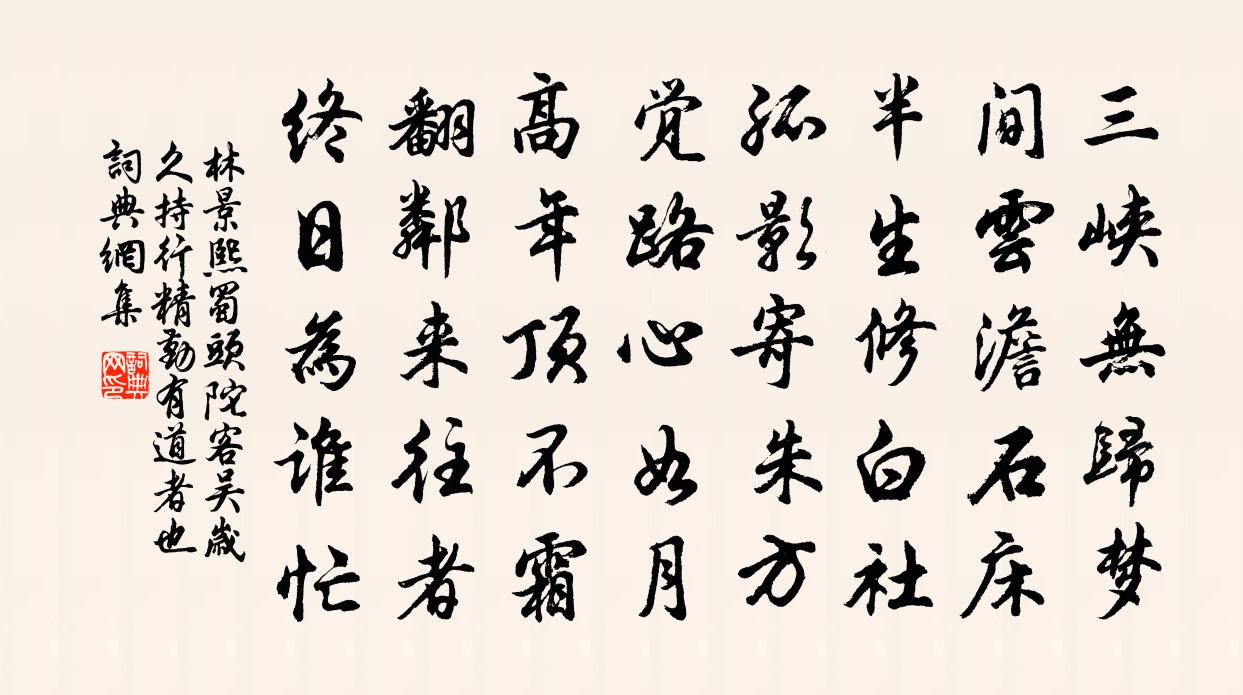 三峡無歸梦
间雲澹石床
半生修白社
孤影寄朱方
觉路心如月
高年顶不霜
翻鄰来往者
终日為谁忙
林景熙蜀頭陀客吴歲
久持行精勤有道者也
詞典網集
詞典
网印